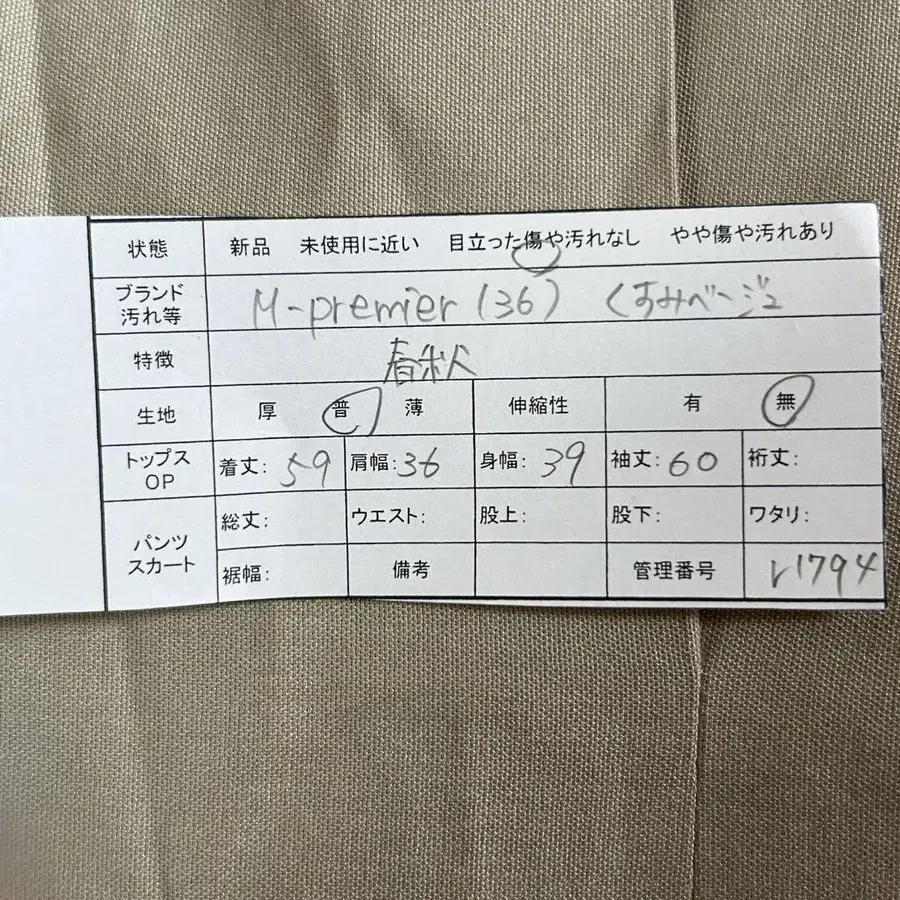 状態 新品 未使用に近い 目立った傷や汚れなし やや傷や汚れあり
ブランド
汚れ等 M-premier (36) くすみベージュ
特徴 春秋
生地 厚 普 薄 伸縮性 有 無
トップス
OP 着丈: 59 肩幅: 36 身幅: 39 袖丈: 60 裄丈:
パンツ
スカート 総丈: ウエスト: 股上: 股下: ワタリ:
裾幅: 備考 管理番号 r1794